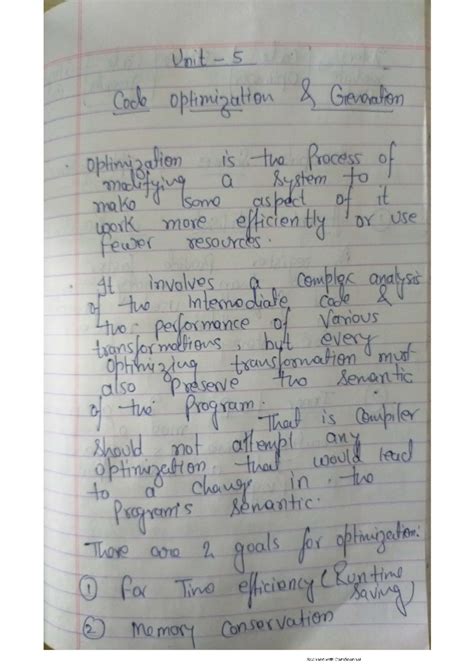 Unit - 5
Code Optimization & Generation
• Optimization is the Process of
modifying a System to
make some aspect of it
work more efficiently or use
fewer resources.
• It involves a complex analysis
of the Intermediate code &
the performance of Various
transformations but every
Optimizing transformation must
also Preserve the Semantic
of the Program.
That is Compiler
Should not attempt any
optimization that would lead
to a change in the
Program's Semantic.
There are 2 goals for optimization:
① For Time efficiency (Runtime
Saving)
② Memory Conservation
Scanned with CamScanner